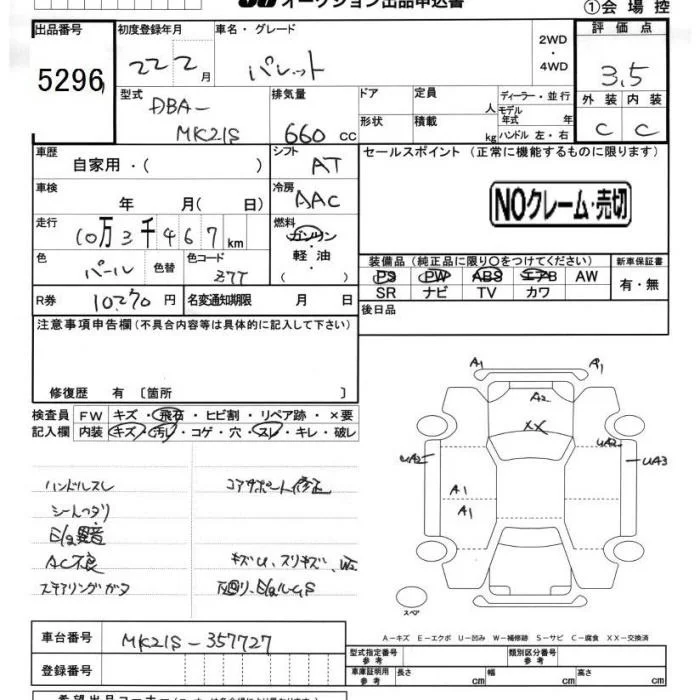 オークション出品申込書
①会場控
出品番号 5296
初度登録年月 22 2月
車名・グレード パレット
2WD・4WD
評価点 3.5
外装 C 内装 C
型式 DBA-MK21S
排気量 660cc
ドア 形状
定員 人
積載 kg
ディーラー・並行
モデル年式 年
ハンドル 左・右
車歴 自家用・( )
シフト AT
セールスポイント(正常に機能するものに限ります)
NOクレーム・売切
車検 年 月( 日)
冷房 AAC
走行 10万3千467km
燃料 ガソリン・軽油・( )
色 パール 色替
色コード Z7T
装備品(純正品に限り○をつけてください)
新車保証書 有・無
PS PW ABS エアB AW
SR ナビ TV カワ
R券 10,270円
名変通知期限 月 日
後日品
注意事項申告欄(不具合内容等は具体的に記入して下さい)
修復歴 有〔箇所 〕
検査員記入欄
FW キズ・飛石・ヒビ割・リペア跡・×要
内装 キズ・汚レ・コゲ・穴・スレ・キレ・破レ
ハンドルスレ
コアサポート修正
シートヘタリ
E/g異音
AC不良
キズU、スリキズ、
ステアリングガタ
下廻り、
A1 A1
A2
XX
UA2 UA2 UA3
A1
A1
スペア
A－キズ E－エクボ U－凹み W－補修跡 S－サビ C－腐食 XX－交換済
車台番号 MK21S-357727
登録番号
型式指定番号 参考
類別区分番号 参考
車庫証明用 参考 長さ cm 幅 cm 高さ cm